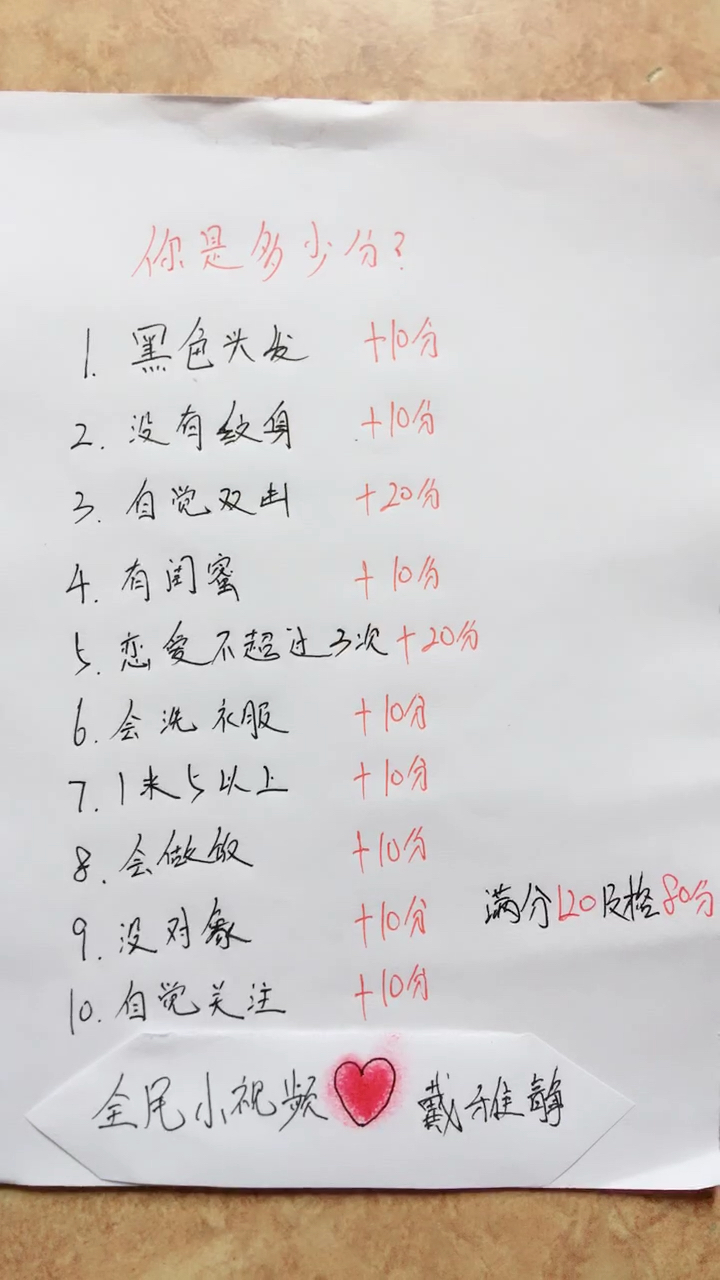 你是多少分?
1. 黑色头发 +10分
2. 没有纹身 +10分
3. 自觉双击 +20分
4. 有闺蜜 +10分
5. 恋爱不超过3次 +20分
6. 会洗衣服 +10分
7. 1米5以上 +10分
8. 会做饭 +10分
9. 没对象 +10分
满分120及格80分
10. 自觉关注 +10分
全尾小视频 戴雅静